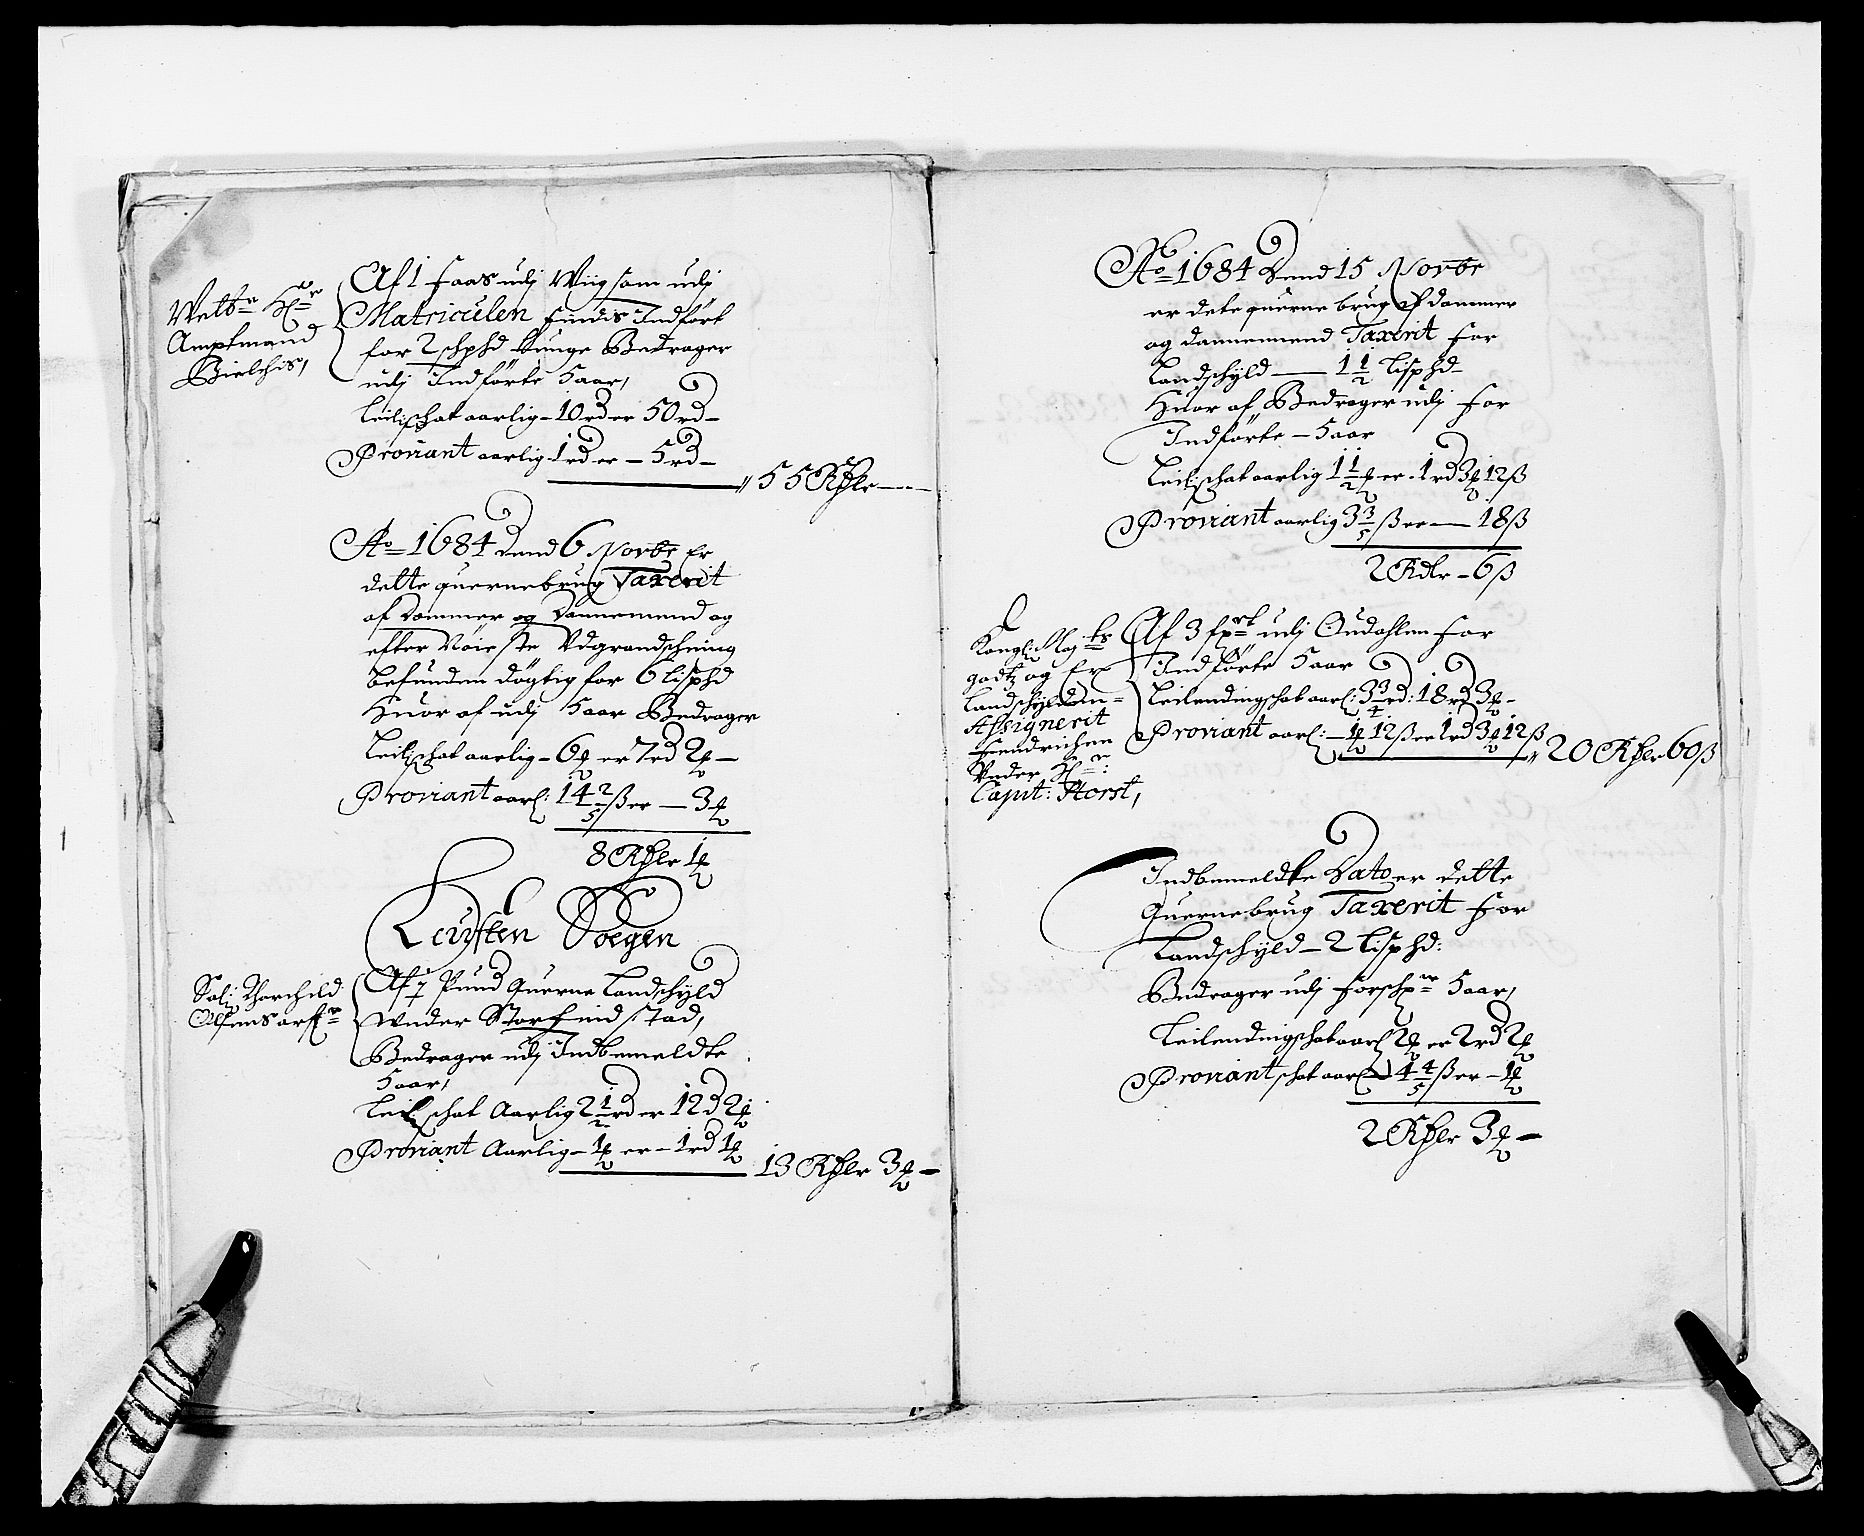 Welbr: Hr:
Amptmand
Bielchis,
Af 1 Faas udj Wiig som udj
Matriculen findis Indført
for 2 schpd tunge Bedrager
udj Indførte 5 aar,
Leil: schat aarlig – 10 rd er 50 rd –
Proviant aarlig 1 rd er – 5 rd –
55 Rdlr
Ao 1684 Dend 6 Novbr Er
dette quernebrug Taxerit
af Dommer og Dannemend og
efter Nøieste Udgrandschning
befunden døgtig for 6 lispd
Huor af udj 5 aar Bedrager
Leil: schat aarlig – 6 ort er 7 rd 2 ort –
Proviant aarl: 14 2/5 ß er – 3 ort
8 Rdlr 1 ort
Leuften Soegen
Sal: Thorchild
Olsens arfr
Af 7 Pund Querne Landschyld
under Storfindstad,
Bedrager udj Indbemeldte
5 aar,
Leil: schat Aarlig 2 1/2 rd er 12 d 2 ort
Proviant Aarlig – 1 ort er – 1 rd 1 ort
13 Rdlr 3 ort –
Ao 1684 Dend 15 Novbr
er dete querne brug af dommer
og dannemend Taxerit for
Landschyld — 1 1/2 lispd –
Huor af Bedrager udj for
Indførte – 5 aar
Leil: schat aarlig 1 1/2 ort er 1 rd 3 ort 12 ß
Proviant aarlig 3 3/5 ß er — 18 ß
2 Rdlr – 6 ß
Kongl: May:ts
godtz og Er
Landschylden
Assignerit
Fendrichen
Under Hr:
Capit: Storst,
Af 3 udj Oudahlen for
Indførte 5 aar
Leilendingschat aarl: 3 3/4 rd: 18 rd 3 ort –
Proviant aarl: – 1 ort 12 ß er 1 rd 3 ort 12 ß
20 Rdlr 60 ß
Indbemeldte Dato er dette
Quernebrug Taxerit for
Landschyld – 2 lispd:
Bedrager udj forschr: 5 aar,
Leilendingschat aarl 2 ort er 2 rd 2 ort
Proviant schat aarl 4 4/5 ß er – 1 ort
2 Rdlr 3 ort –